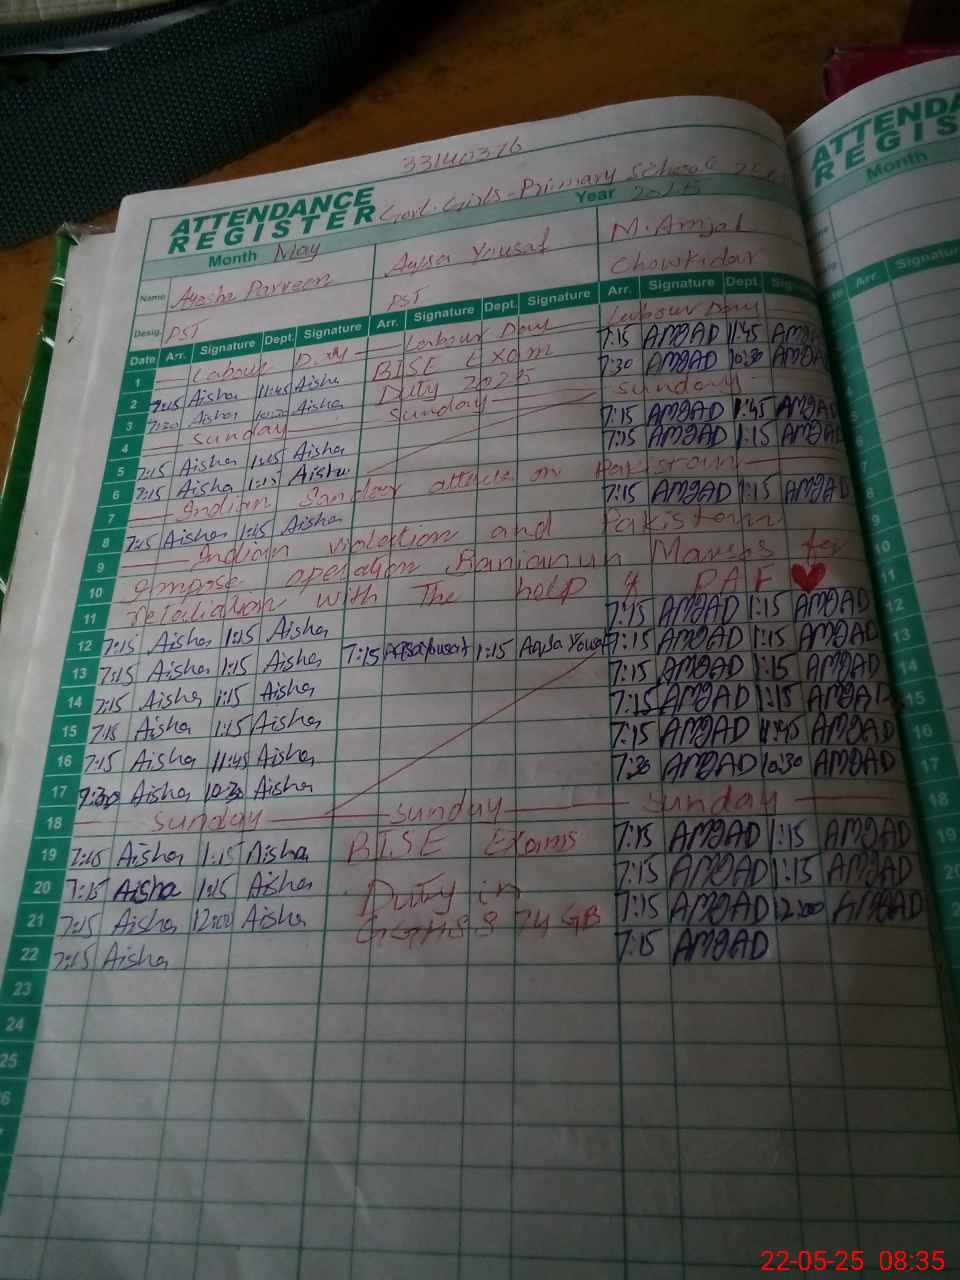 33140376
ATTENDANCE REGISTER Govt. Girls Primary School
Month May Year 2025
Name Ayesha Parveen Aqsa Yousaf M. Amjad
Desig. PST PST Chowkidar
Date Arr. Signature Dept. Signature Arr. Signature Dept. Signature Arr. Signature Dept. Signature
1 Labour Day Labour Day Labour Day
2 7:15 Aisha 11:45 Aisha BISE Exam 7:15 AMJAD 11:45 AMJAD
3 7:30 Aisha 10:30 Aisha Duty 2025 7:30 AMJAD 10:30 AMJAD
4 Sunday Sunday Sunday
5 7:15 Aisha 1:45 Aisha 7:15 AMJAD 1:45 AMJAD
6 7:15 Aisha 1:15 Aisha 7:15 AMJAD 1:15 AMJAD
7 Indian attack on Pakistan
8 7:15 Aisha 1:15 Aisha 7:15 AMJAD 1:15 AMJAD
9 Indian violation and Pakistan
10 impose operation Banianun Marsos for
11 retaliation with The help of PAF
12 7:15 Aisha 1:15 Aisha 7:15 AMJAD 1:15 AMJAD
13 7:15 Aisha 1:15 Aisha 7:15 Aqsa Yousaf 1:15 Aqsa Yousaf 7:15 AMJAD 1:15 AMJAD
14 7:15 Aisha 1:15 Aisha 7:15 AMJAD 1:15 AMJAD
15 7:15 Aisha 1:15 Aisha 7:15 AMJAD 1:15 AMJAD
16 7:15 Aisha 11:45 Aisha 7:15 AMJAD 11:45 AMJAD
17 7:30 Aisha 10:30 Aisha 7:30 AMJAD 10:30 AMJAD
18 Sunday Sunday Sunday
19 7:15 Aisha 1:15 Aisha BISE Exams 7:15 AMJAD 1:15 AMJAD
20 7:15 Aisha 1:15 Aisha Duty in 7:15 AMJAD 1:15 AMJAD
21 7:15 Aisha 12:00 Aisha 74 GB 7:15 AMJAD 12:00 AMJAD
22 7:15 Aisha 7:15 AMJAD
23
24
25
ATTENDA
REGIS
Month
Arr. Signature
8
9
10
11
12
13
14
15
16
17
18
19
22-05-25 08:35